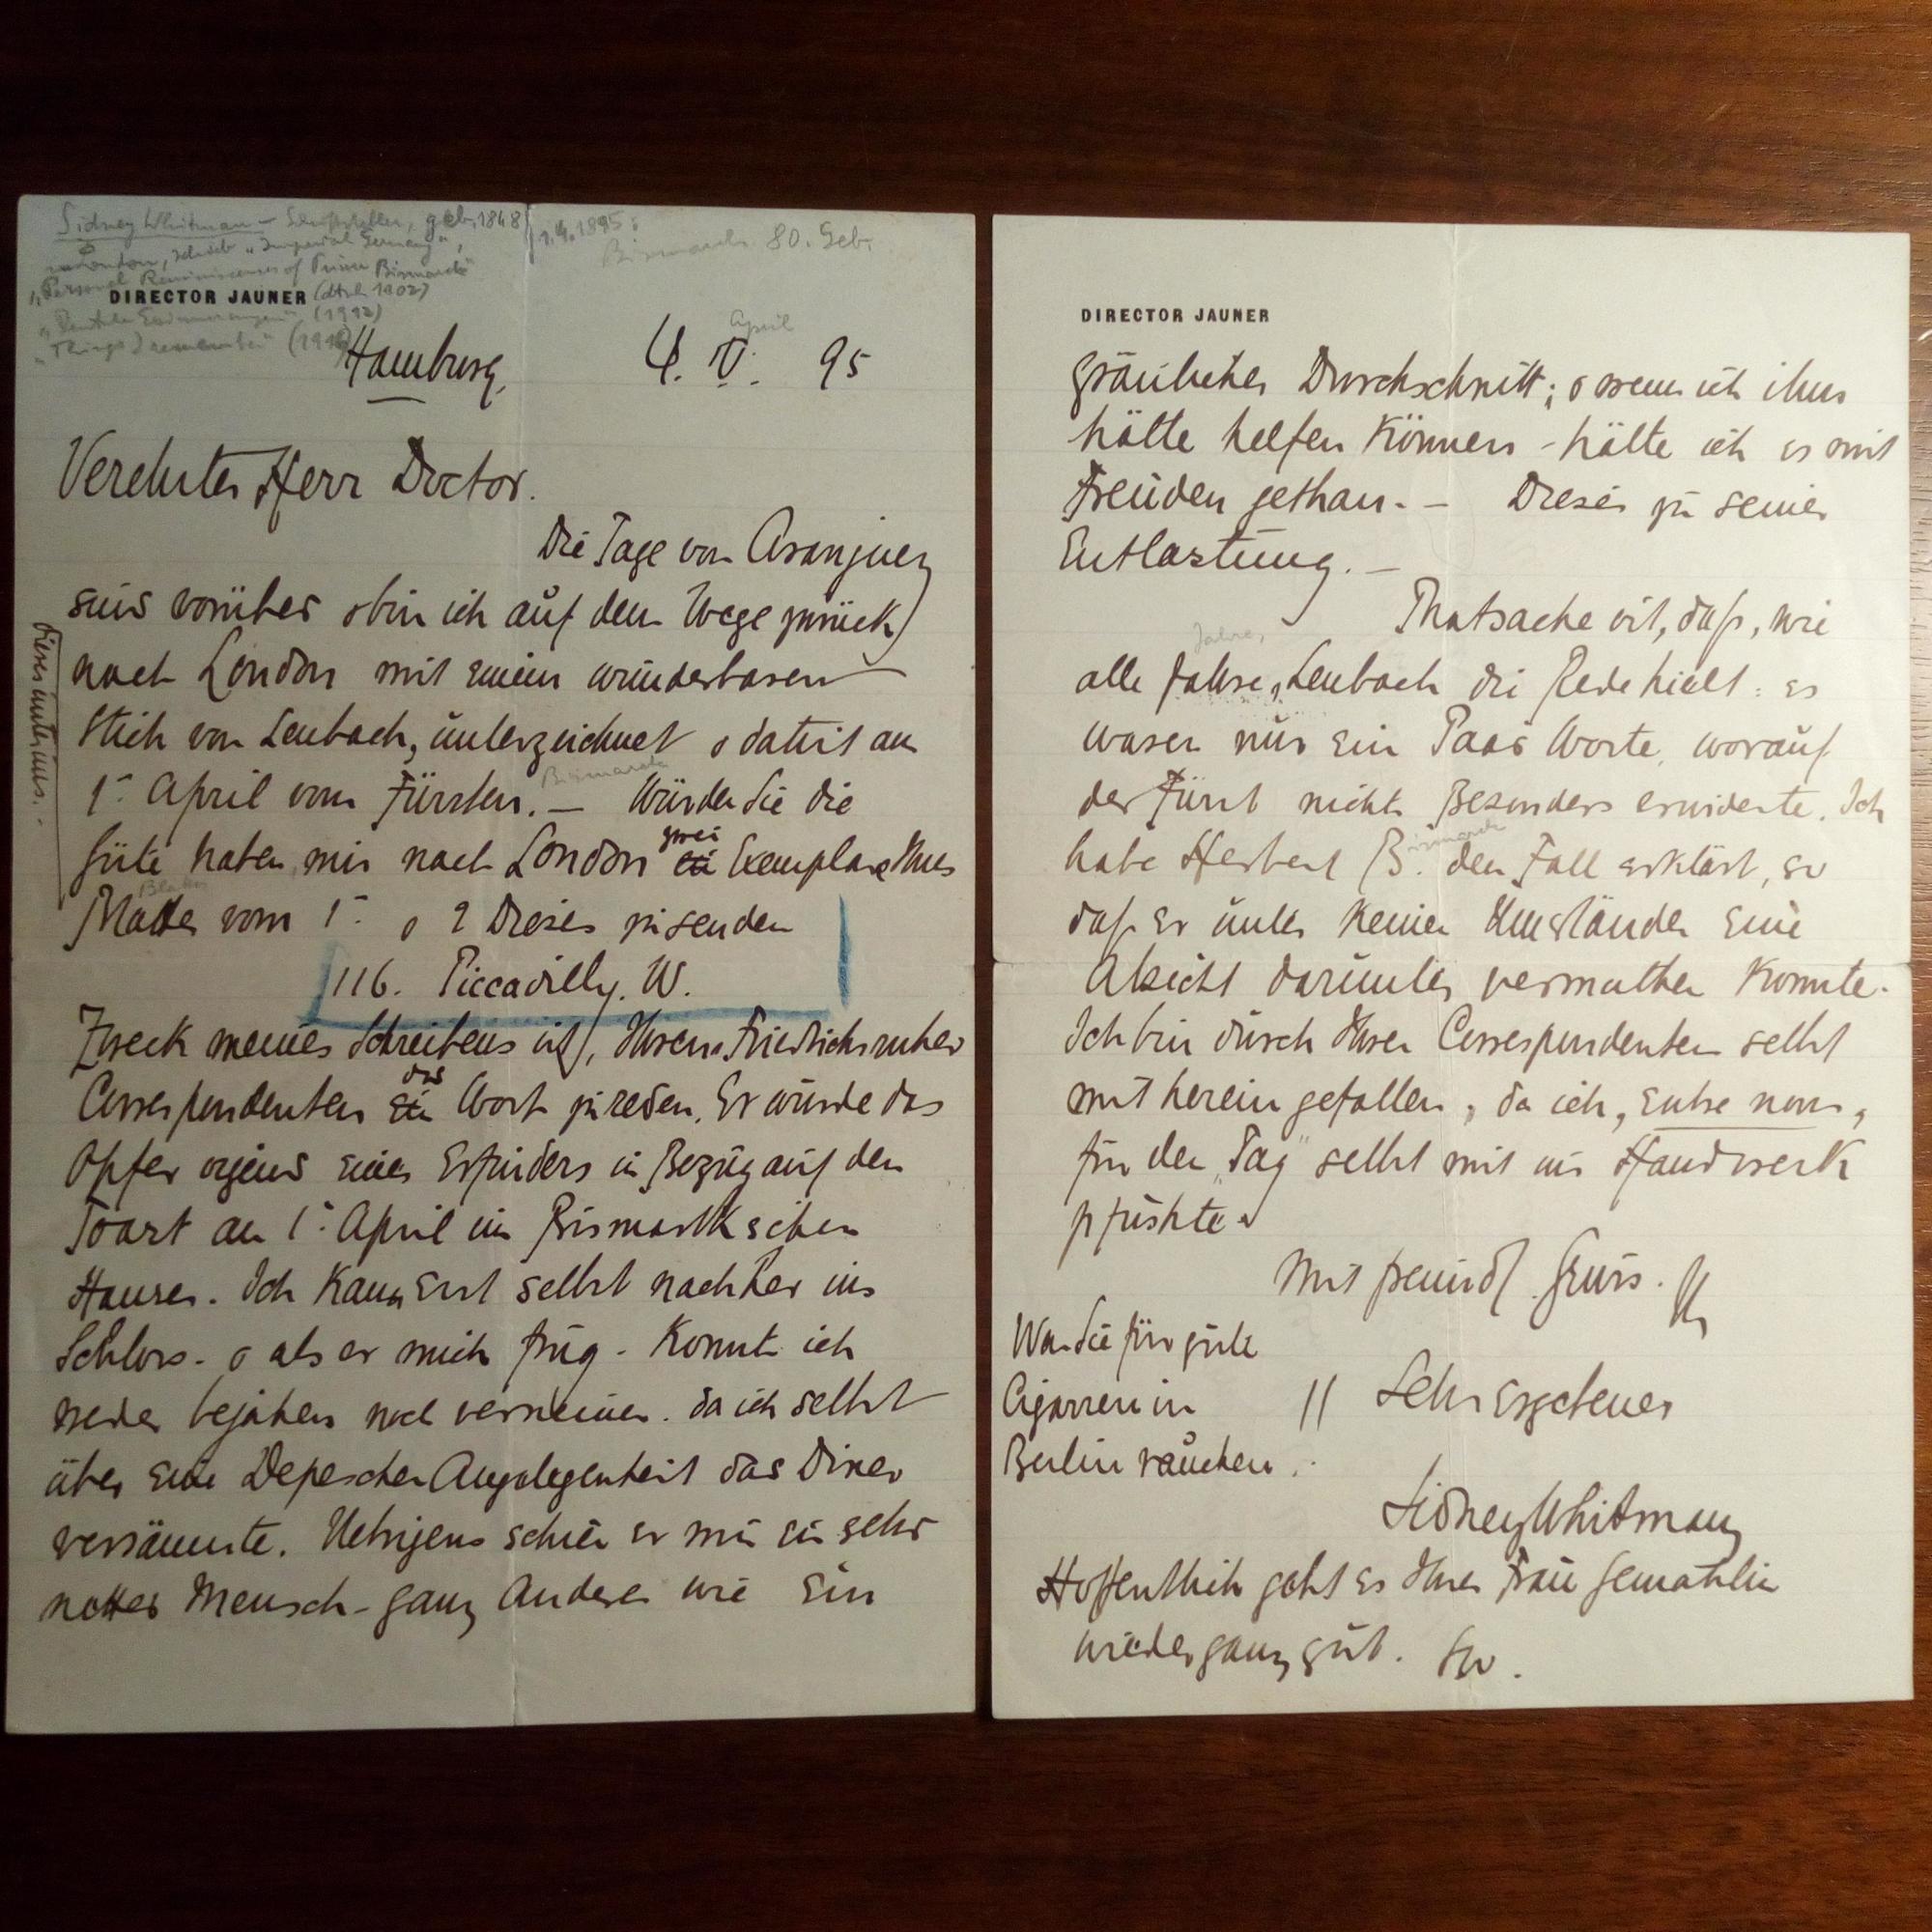 Sidney Whitman – Schriftsteller, geb. 1848
in London, schrieb "Imperial Germany",
"Personal Reminiscences of Prince Bismarck"
(dtsch 1902)
"Deutsche Erinnerungen" (1912)
"Things I remember" (1916)
1.4.1895:
Bismarcks 80. Geb.
DIRECTOR JAUNER
April
Hamburg, 4. IV. 95
Verehrter Herr Doctor.
Die Tage von Aranjuez
sind vorüber & bin ich auf dem Wege zurück
nach London mit einem wunderbaren
Stich von Lenbach, unterzeichnet & datirt am
1ᵗ April vom Fürsten. – Würden Sie die
Bismarck
Güte haben mir nach London zwei Exemplare Ihres
Blattes vom 1ᵗ & 2 Dieses zu senden
116. Piccadilly. W.
Zweck meines Schreibens ist, Ihrem Friedrichsruher
Correspondenten das Wort zu reden. Er wurde das
Opfer irgend eines Erfinders in Bezug auf den
Toast am 1ᵗ April im Bismarckschen
Hause. Ich kam erst selbst nachher ins
Schloss – & als er mich frug – konnte ich
weder bejahen noch verneinen. da ich selbst
über eine Depeschen Angelegenheit das Diner
versäumte. Uebrigens schien er mir ein sehr
netter Mensch – ganz Anderes wie ein
Dieses unter uns.
DIRECTOR JAUNER
gräulicher Durchschnitt; & wenn ich ihm
hätte helfen können – hätte ich es mit
Freuden gethan. – Dieses zu seiner
Entlastung. –
Thatsache ist, daß, wie
Jahre,
alle Jahre, Lenbach die Rede hielt: es
waren nur ein Paar Worte, worauf
der Fürst nichts Besonders erwiderte. Ich
habe Herbert B. den Fall erklärt, so
Bismarck
daß Er unter keinen Umständen eine
Absicht darunter vermuthen konnte.
Ich bin durch Ihren Correspondenten selbst
mit herein gefallen, da ich, entre nous,
für den "Tag" selbst mit ins Handwerk
pfuschte.
Mit freundl. Gruss.
Ihr
Sehr Ergebener
Sidney Whitman
Was Sie für gute
Cigarren in
Berlin rauchen.
Hoffentlich geht es Ihrer Frau Gemahlin
wieder ganz gut. SW.